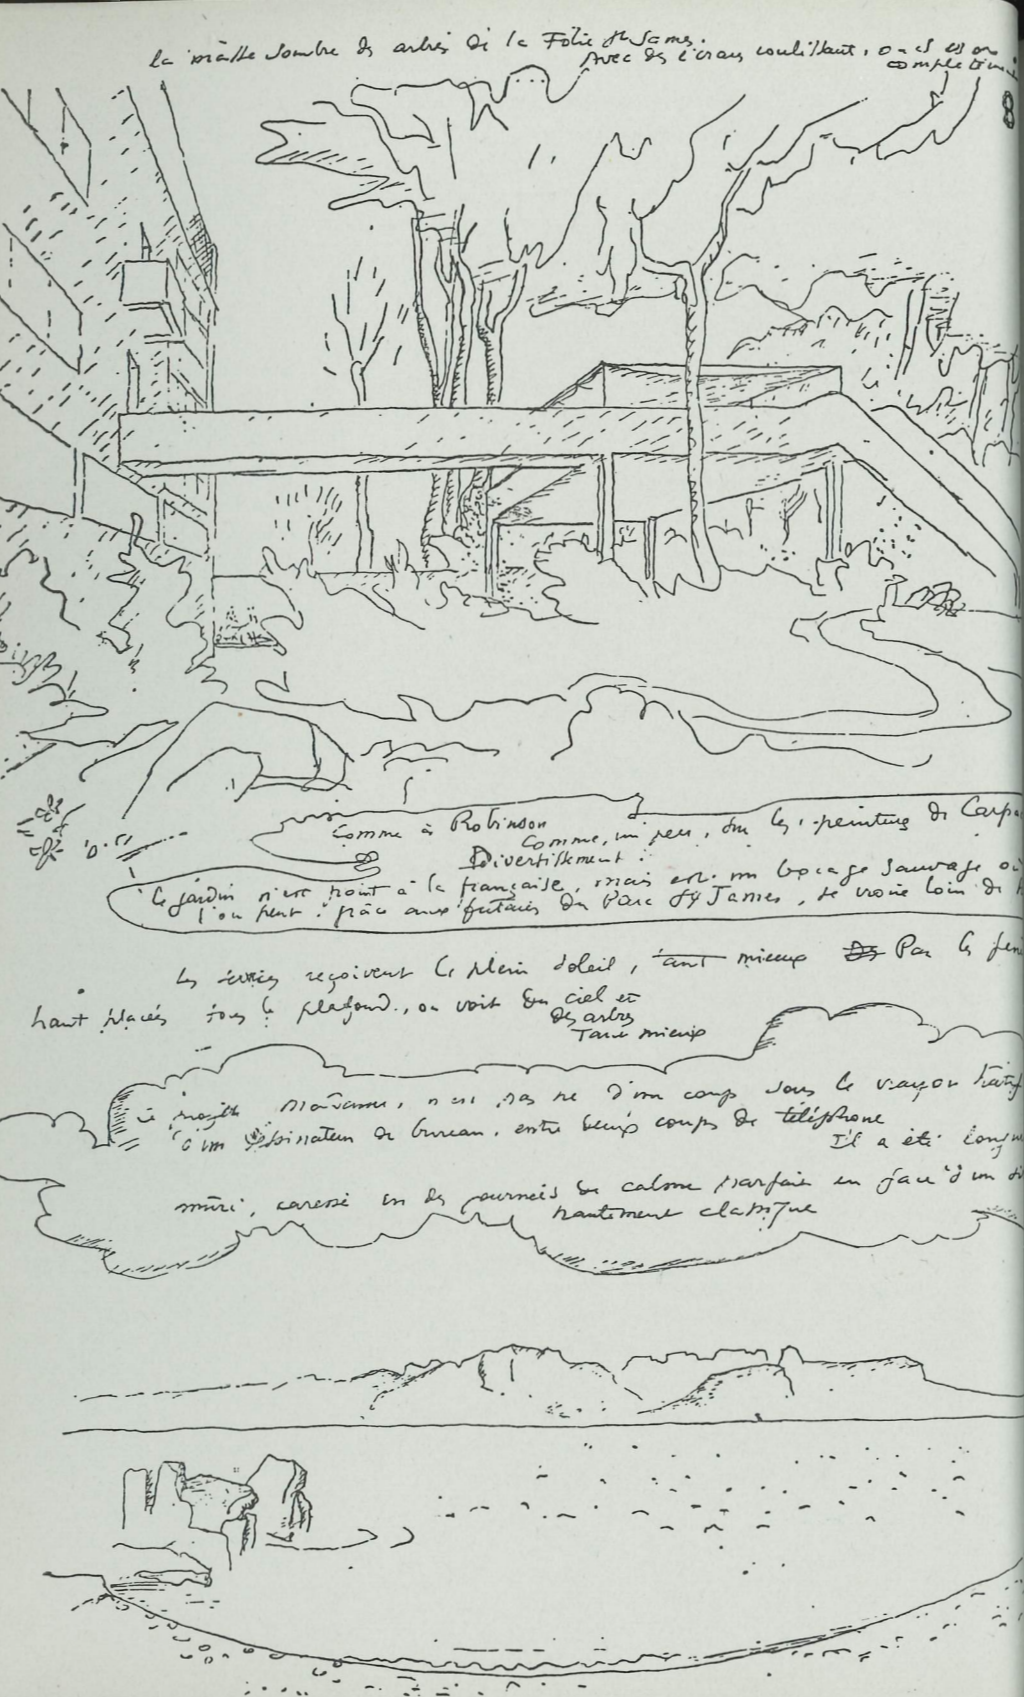 la masse sombre des arbres de la Folie St James.
Avec des écrans coulissants, on
8
Comme à Robinson
Comme, un peu, sur les peintures de Carpa
Divertissement :
Ce jardin n'est point à la française, mais est un bocage sauvage où
l'on peut, grâce aux futaies du Parc St James, se croire loin de
Les reçoivent le plein soleil, tant mieux Par les fen
haut placées sous le plafond, on voit du ciel et
des arbres
Tant mieux
Ce projet Madame, n'est pas né d'un coup sous le crayon hâtif
d'un dessinateur de bureau, entre deux coups de téléphone
Il a été longu
mûri, caressé en des journées de calme parfait en face d'un si
hautement classique